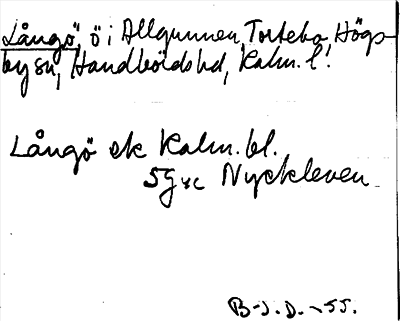 Långö, ö i Allgunnen, Torkebo, Högs-
by sn, Handbörds hd, Kalm. l.
Långö ek Kalm. bl.
5G yc Nyckleven
B-J. D. -55.